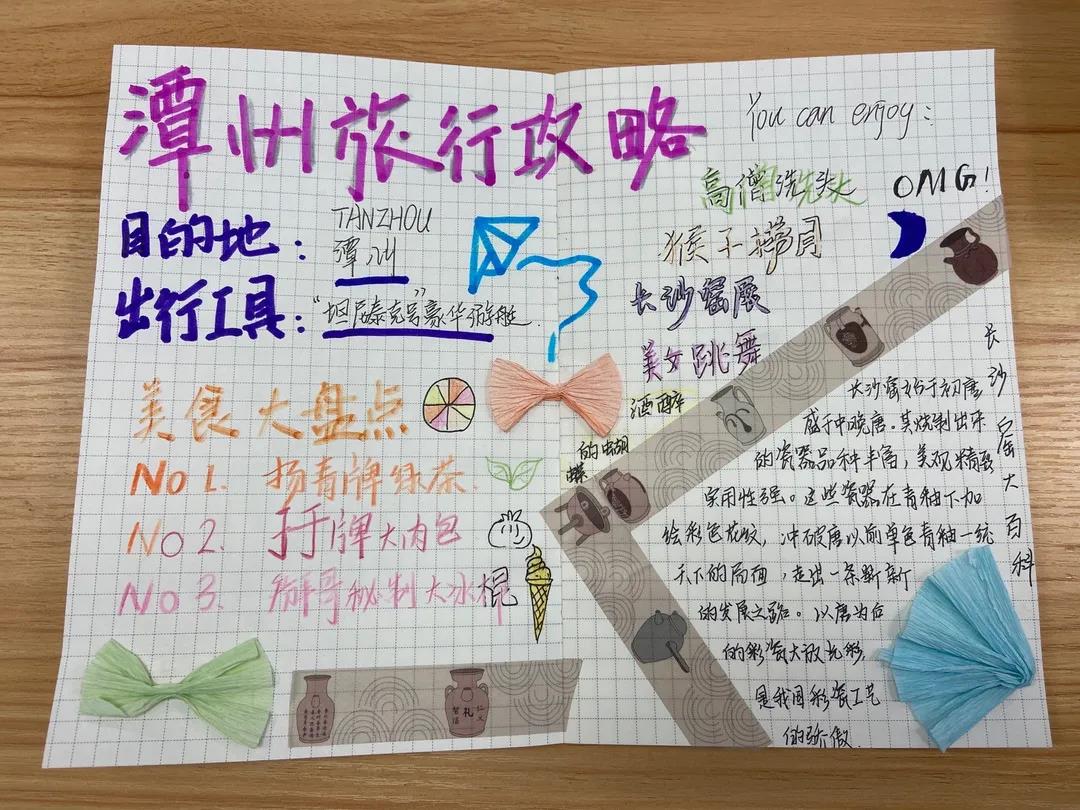 潭州旅行攻略
目的地：
TANZHOU
潭州
出行工具：
“坦尼泰克号”豪华游艇.
美食大盘点
No 1. 扬青牌绿茶.
No 2. 于于牌大肉包
No 3. 秘制大冰棍
You can enjoy：
高僧洗头
OMG!
猴子捞月
长沙窑展
美女跳舞
酒醉
的蝴
蝶
长沙窑大百科
长沙窑始于初唐
盛于中晚唐。其烧制出来
的瓷器品种丰富，美观精致
实用性强。这些瓷器在青釉下加
绘彩色花纹，冲破唐以前单色青釉一统
天下的局面，走出一条崭新
的发展之路。以唐为后
的彩瓷大放光彩，
是我国彩瓷工艺
的骄傲.
仁义
礼
智信